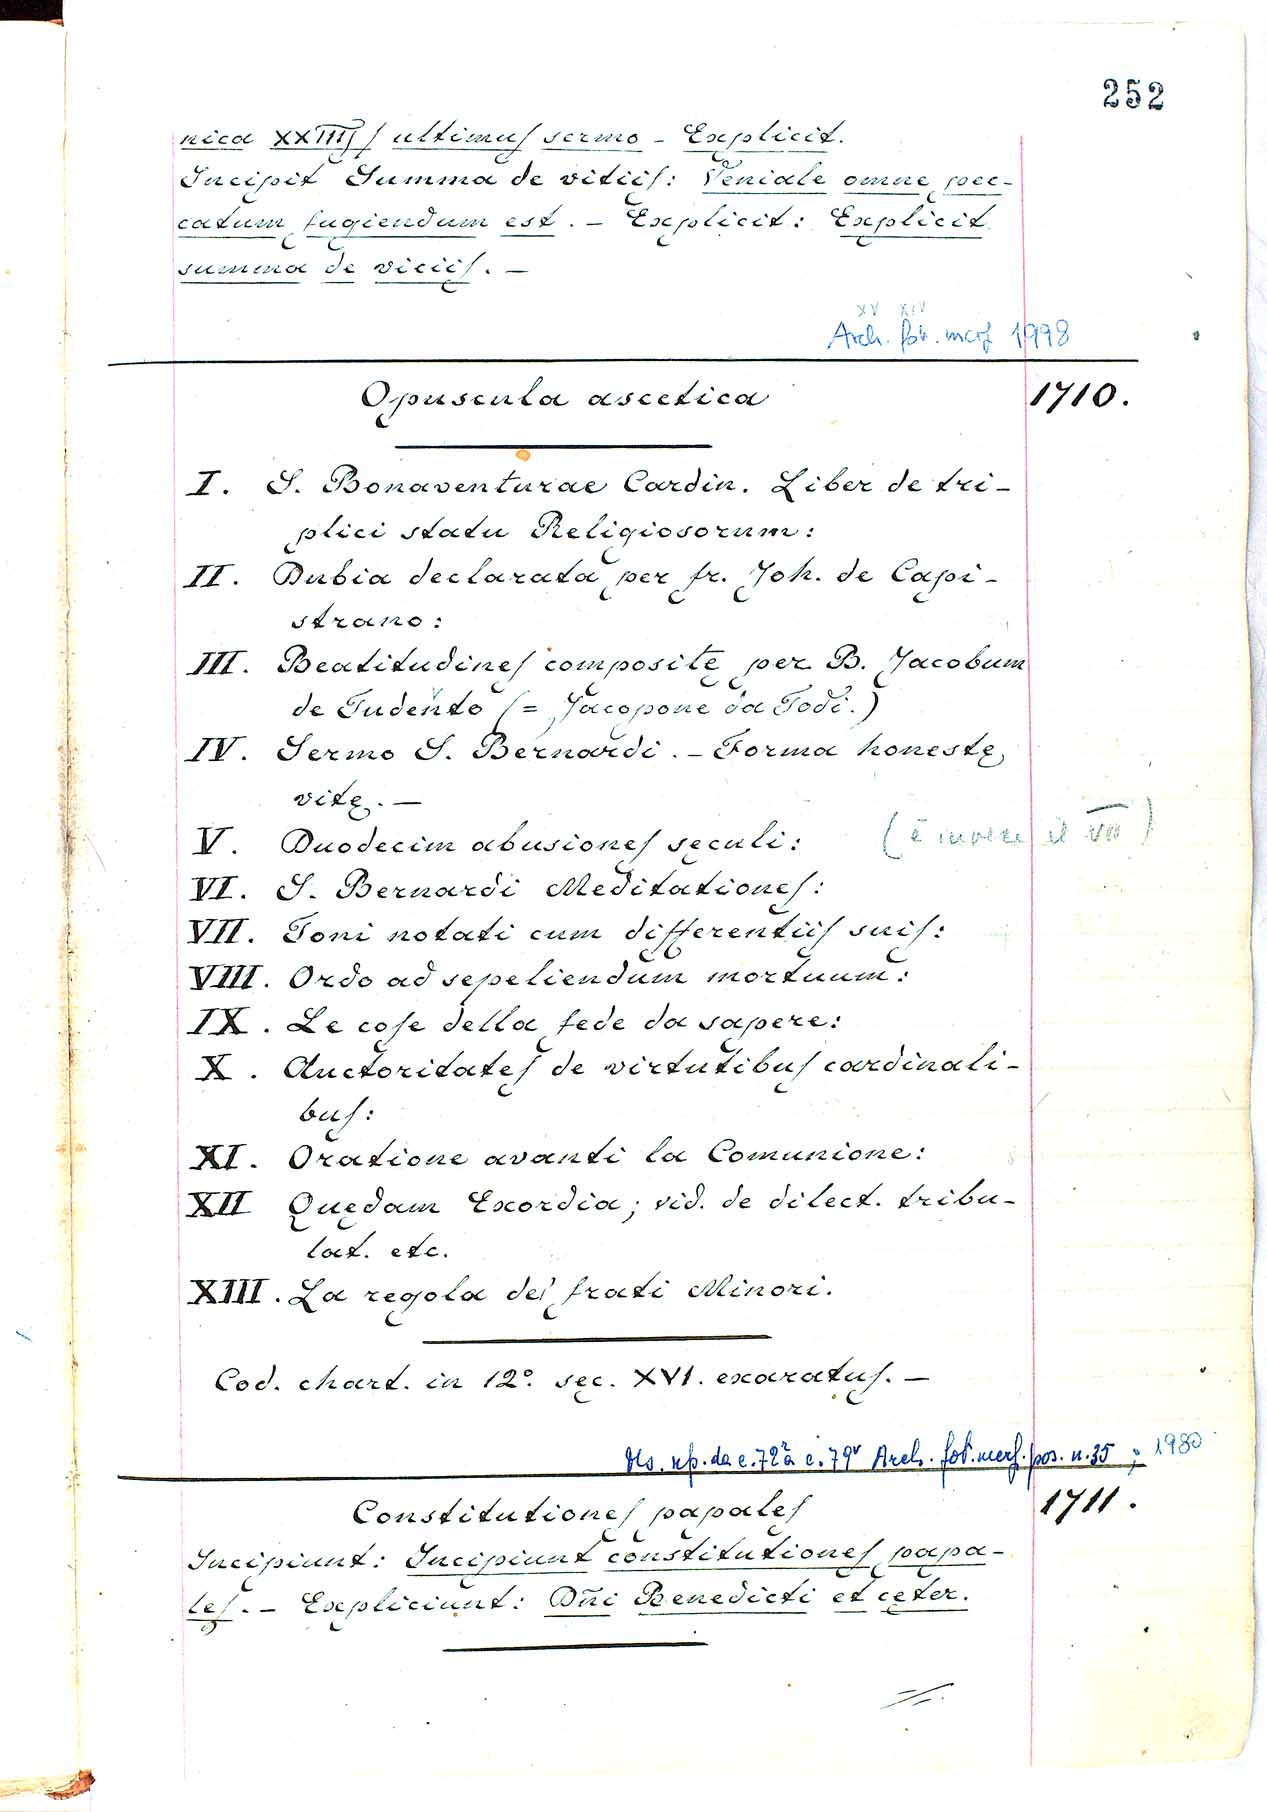 252
nica XXIIIJ ultimus sermo – Explicit.
Incipit Summa de vitiis: Veniale omne pec-
catum fugiendum est. – Explicit: Explicit
summa de viciis. –
XV XIV
Arch. fot. 1998
Opuscula ascetica 1710.
I. S. Bonaventurae Cardin. Liber de tri-
plici statu Religiosorum:
II. Dubia declarata per fr. Joh. de Capi-
strano:
III. Beatitudines compositę per B. Jacobum
de Tudento (= Jacopone da Todi.)
IV. Sermo S. Bernardi. – Forma honestę
vitę. –
V. Duodecim abusiones sęculi: (è invece il VII)
VI. S. Bernardi Meditationes:
VII. Toni notati cum differentiis suis:
VIII. Ordo ad sepeliendum mortuum:
IX. Le cose della fede da sapere:
X. Auctoritates de virtutibus cardinali-
bus:
XI. Oratione avanti la Comunione:
XII Quędam Exordia; vid. de dilect. tribu-
lat. etc.
XIII. La regola dei frati Minori.
Cod. chart. in 12°. sec. XVI. exaratus. –
Ms. rip. da c. 72r a c. 79v Arch. fot. pos. n. 35; 1980
Constitutiones papales 1711.
Incipiunt: Incipiunt constitutiones papa-
les. – Expliciunt: Dn̄i Benedicti et cęter.